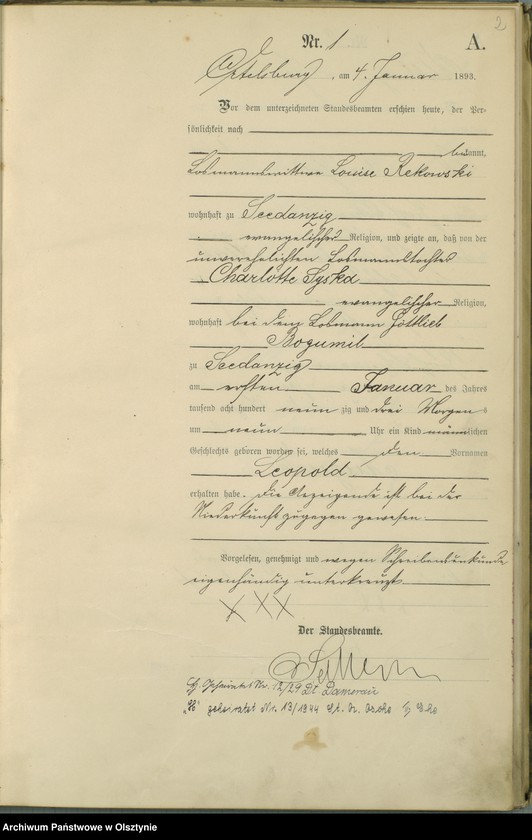 2
Nr. 1 A.
Ortelsburg, am 4. Januar 1893.
Vor dem unterzeichneten Standesbeamten erschien heute, der Per-
sönlichkeit nach
bekannt,
Losmannswittwe Louise Rekowski
wohnhaft zu Seedanzig
evangelischer Religion, und zeigte an, daß von der
unverehelichten Losmannstochter
Charlotte Syska
evangelischer Religion,
wohnhaft bei dem Losmann Gottlieb
Bogumil
zu Seedanzig
am ersten Januar des Jahres
tausend acht hundert neun zig und drei Morgens
um neun Uhr ein Kind männlichen
Geschlechts geboren worden sei, welches den Vornamen
Leopold
erhalten habe. Die Anzeigende ist bei der
Niederkunft zugegen gewesen.
Vorgelesen, genehmigt und wegen Schreibensunkunde
eigenhändig unterkreuzt
XXX
Der Standesbeamte.
Nr. 12/29 Damerau
"H" geheiratet Nr. 13/1944 St. A.
Archiwum Państwowe w Olsztynie